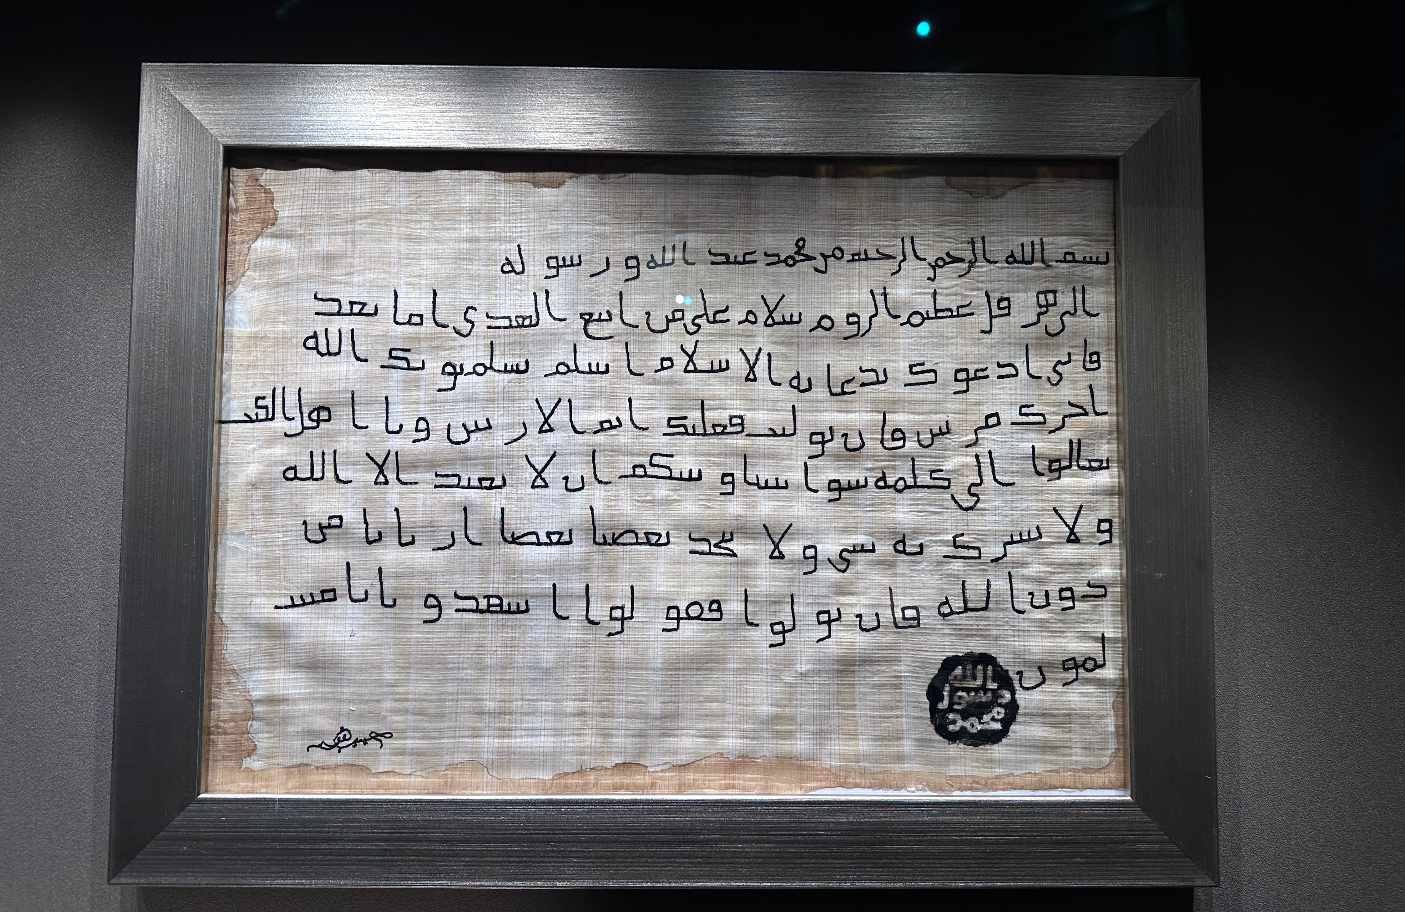 بسم الله الرحمن الرحيم من محمد عبد الله و ر سو له
الى هر قل عظيم الرو م سلام على من اتبع الهدى اما بعد
فا نى اد عو ك بد عا ية الا سلا م ا سلم تسلم يو تك الله
ا جرك مر تين فا ن تو ليت فعليك اثم الا ر يس و يا ا هل الكتـ
تعالوا الى كلمة سو ا بيننا و بينكم ا ن لا نعبد الا الله
و لا نشر ك به شى و لا يتخذ بعضنا بعضا ا ر با با من
دو ن ا لله فا ن تو لو ا فقو لو ا ا شهد و ا با نا مسـ
لمو ن
الله
رسول
محمد